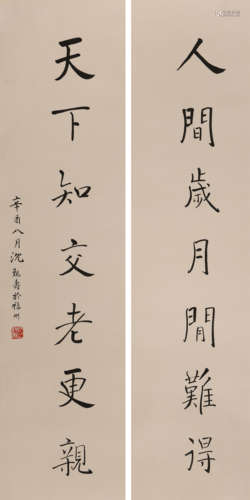 人間歲月閒難得
天下知交老更親
辛酉八月沈覲壽於福州